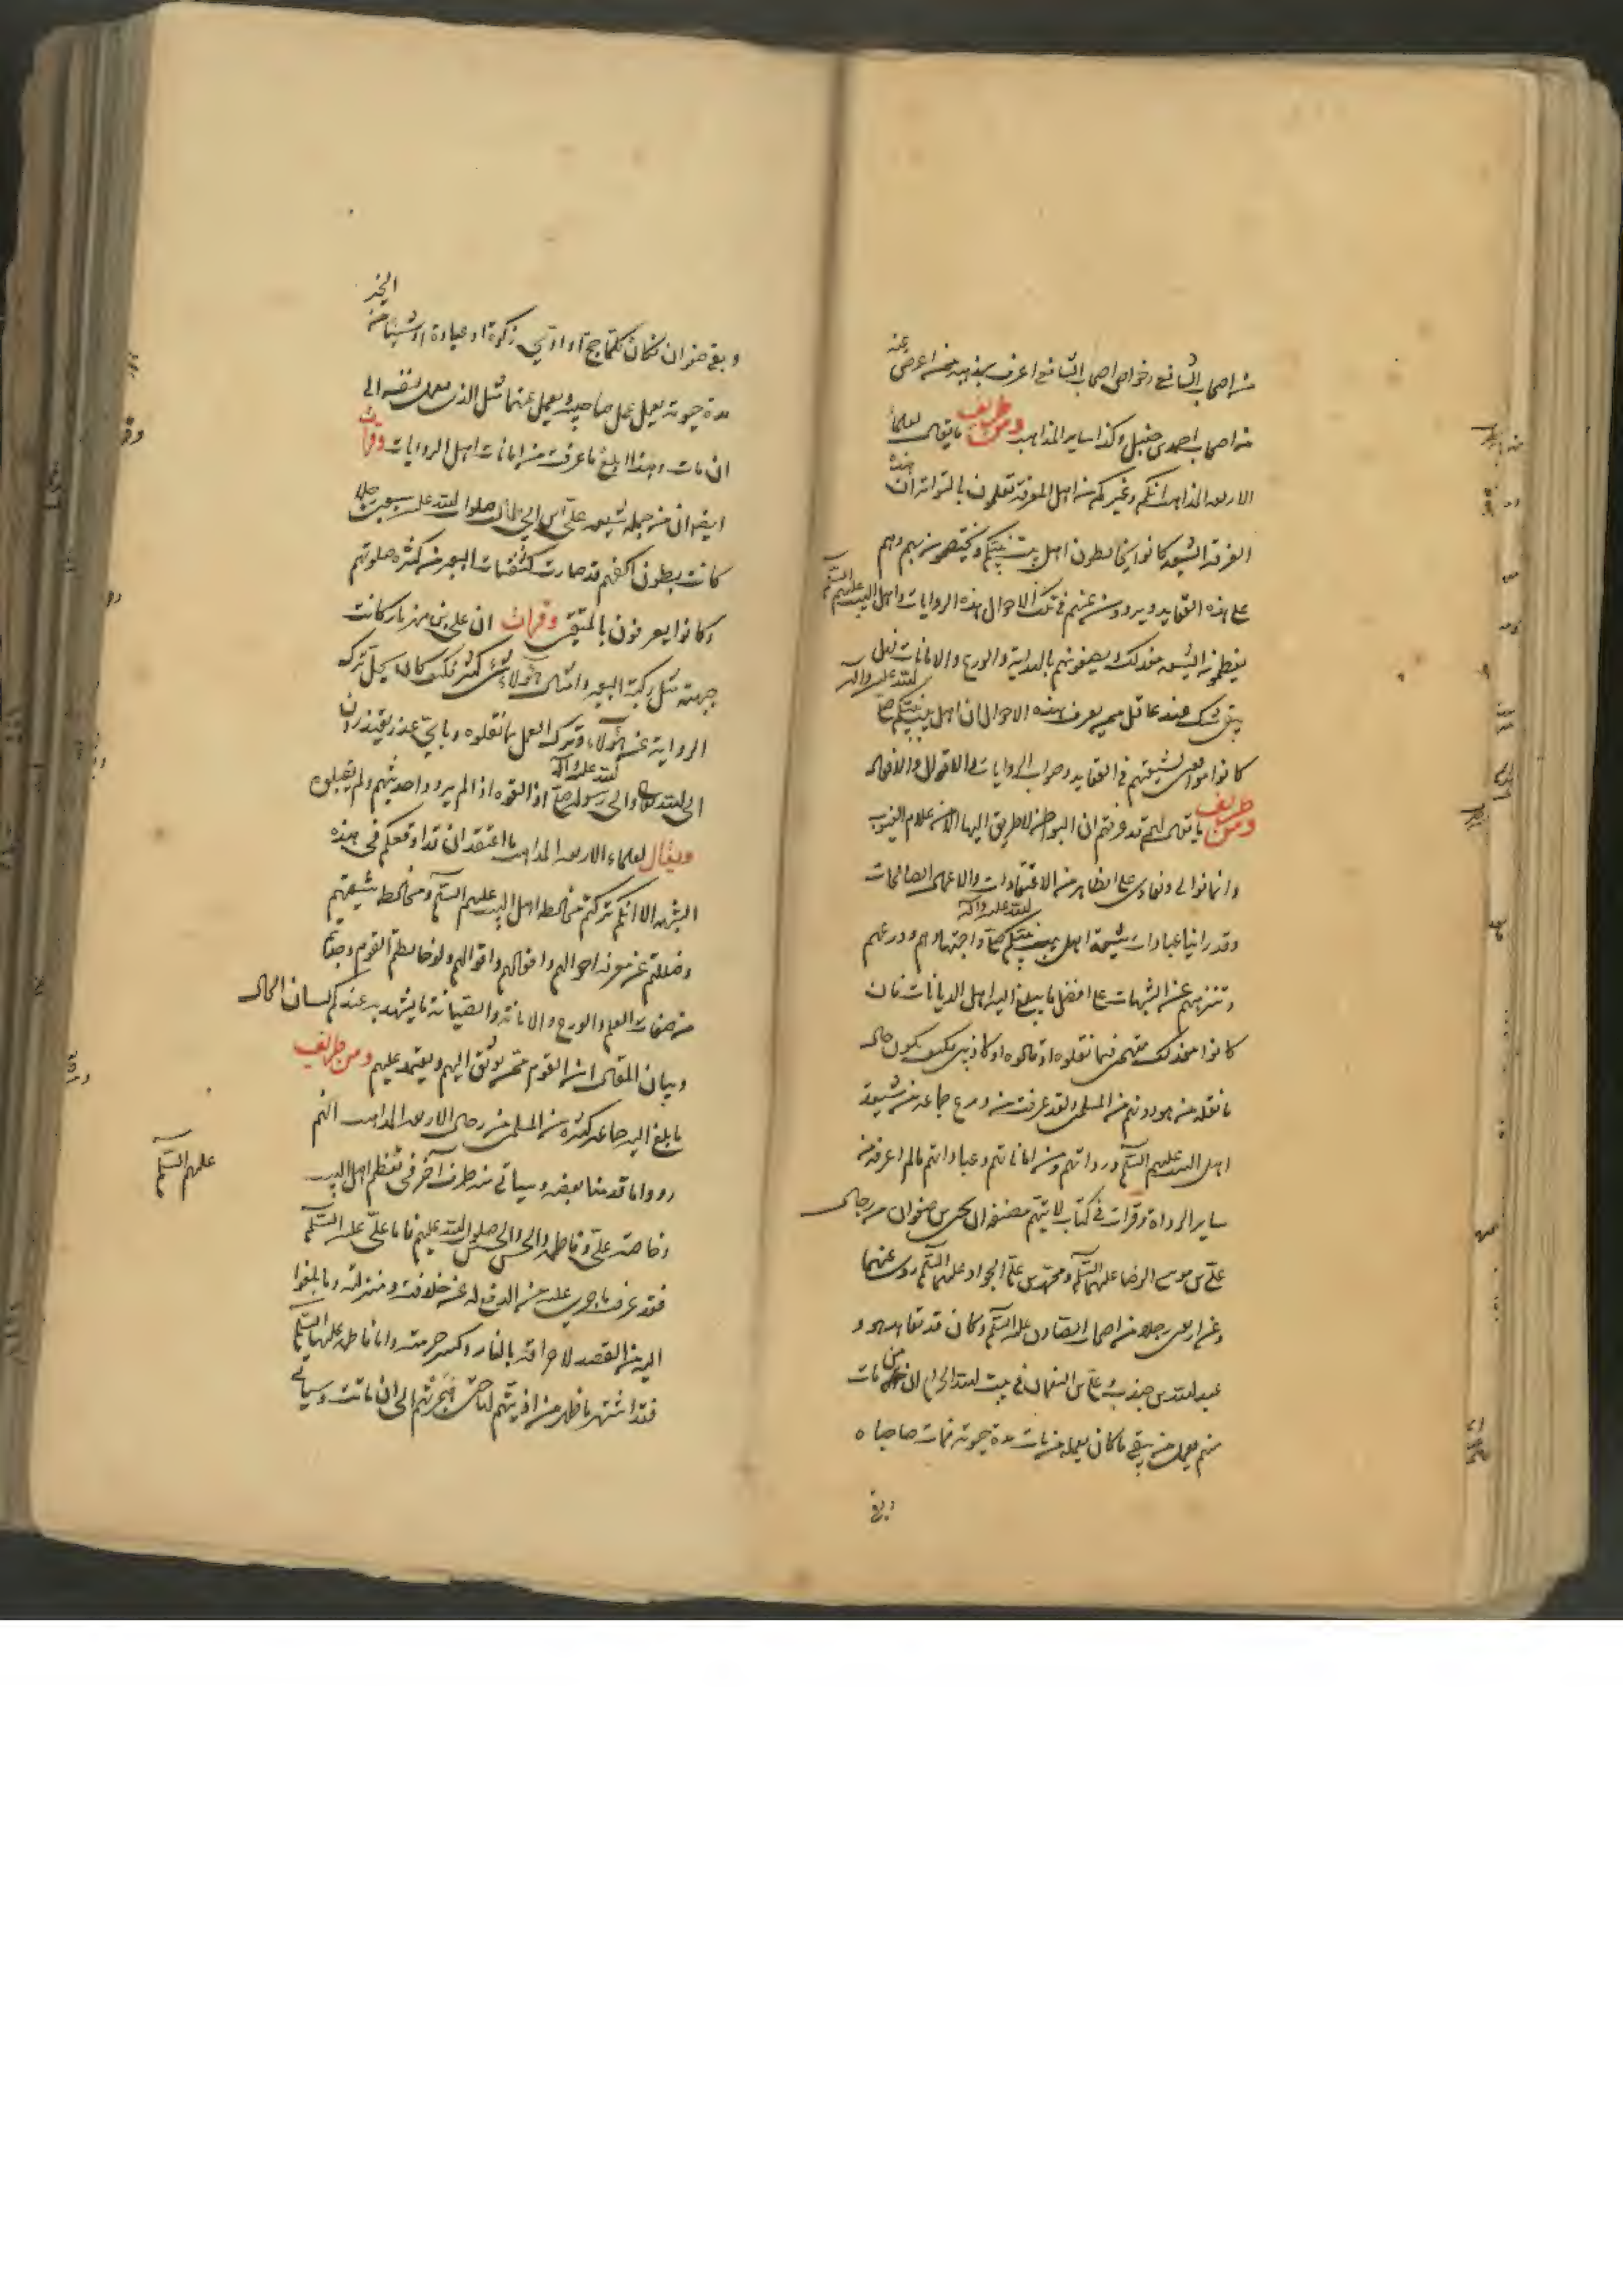 من اصحاب الشافعي وخواص اصحاب الشافعي اعرف بمذهبه ممن اعرض عنه
من اصحاب احمد بن حنبل وكذا ساير المذاهب ومن طريف ما يقال لعلماء
الاربعة المذاهب انكم وغيركم من اهل المعرفة تعلمون بالتواتر ان هذه
الفرقة الشيعة كانوا يخالطون اهل بيت نبيكم ويختصون بهم وهم
على هذه العقايد ويروون عنهم في تلك الاحوال هذه الروايات واهل البيت عليهم السلم
يعظمون الشيعة عند ذلك ويصفونهم بالهداية والورع والامانات فهل
يبقى شك عند عاقل ممن يعرف هذه الاحوال ان اهل بيت نبيكم صلى الله عليه واله
كانوا موافقين لشيعتهم في العقايد وصواب الروايات في الاقوال والافعال
ومن طريف ما يقال لهم قد عرفتم ان البواطن لا طريق اليها الا من علام الغيوب
وانما نوالي ونعادي على الظاهر من الاعتقادات والاعمال الصالحات
وقد راينا عبادات شيعة اهل بيت نبيكم صلى الله عليه واله واجتهادهم وورعهم
وتنزههم عن الشبهات على افضل ما يبلغ اليه اهل الديانات فان
كانوا مع ذلك متهمين فيما نقلوه او قالوه او كاذبين فكيف يكون حال
ما نقله من هو دونهم من المسلمين ولقد عرفت من ورع جماعة من شيعة
اهل البيت عليهم السلم ورواتهم ومن اماناتهم وعباداتهم ما لم اعرفه من
ساير الرواة وقرات في كتاب لا يتهم مصنفه ان يحيى بن صفوان من رجال
علي بن موسى الرضا عليهما السلم ومحمد بن علي الجواد عليهما السلم روى عنهما
وعن اربعين رجلا من اصحاب الصادق عليه السلم وكان قد تعاهد هو و
عبد الله بن جندب وعلي بن النعمان في بيت الله الحرام ان من مات
منهم يعمل من بقي ما كان يعمله من مات مدة حيوته فمات صاحباه
وبقي
وبقي صفوان فكان كلما حج او ادى زكوة او عبادة او شيئا من الخير
مدة حيوته يعمل عن صاحبيه ويعمل عنهما مثل الذي يعمل لنفسه الى
ان مات وهذا ابلغ ما عرفت من امانات اهل الروايات وقرات
ايضا ان من جملة شيعة علي بن ابي طالب صلوات الله عليه سبعين رجلا
كانت بطون اكفهم قد صارت كثفنات البعير من كثرة صلوتهم
وكانوا يعرفون بالمتقين وقرات ان علي بن مهزيار كانت
جبهته مثل ركبة البعير وامثال هؤلاء شيء كثير فكيف كان يحل ترك
الرواية عن هؤلاء وترك العمل بما نقلوه وباي عذر يعتذرون
الى الله والى رسوله صلى الله عليه واله اذ القوه اذا لم يردوا حديثهم ولم يقبلوه
ويقال لعلماء الاربعة المذاهب ما اعتقد ان قد اوقعكم في هذه
الشبهة الا انكم تركتم مخالطة اهل البيت عليهم السلم ومخالطة شيعتهم
وضللتم عن معرفة احوالهم وافعالهم واقوالهم ولو خالطتم القوم وجدتم
من صفات العلم والورع والامانة والصيانة ما يشهد به عندكم لسان الحال
وبيان المقال ان القوم ممن يوثق اليهم ويعتمد عليهم ومن طريف
ما بلغ اليه جماعة كثيرة من المسلمين من رجال الاربعة المذاهب انهم
رووا ما قدمنا بعضه وسياتي منه طرف آخر في تعظيم اهل البيت عليهم السلم
وخاصة علي وفاطمة والحسن والحسين صلوات الله عليهم فاما علي عليه السلم
فقد عرفت ما جرى عليه من الدفع له عن خلافته ومنزلته وما بلغوا
اليه من القصد لاحراقه بالنار وكسر حرمته واما فاطمة عليها السلم
فقد اشتهر ما ظهر من اذيتهم لها حتى هجرتهم الى ان ماتت وسياتي